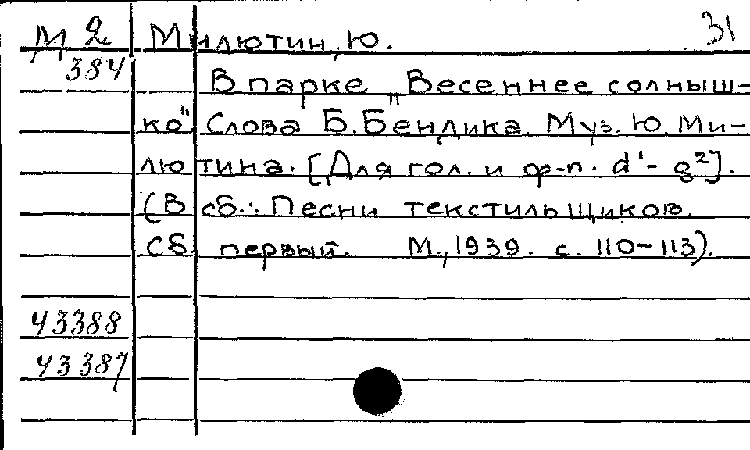 М 2 Милютин, Ю. 31
384 В парке „Весеннее солныш-
ко". Слова Б. Бендика. Муз. Ю. Ми-
лютина. [Для гол. и ф-п. d¹- g²].
(В сб.: Песни текстильщиков.
Сб. первый. М., 1939. с. 110-113).
43388
43387